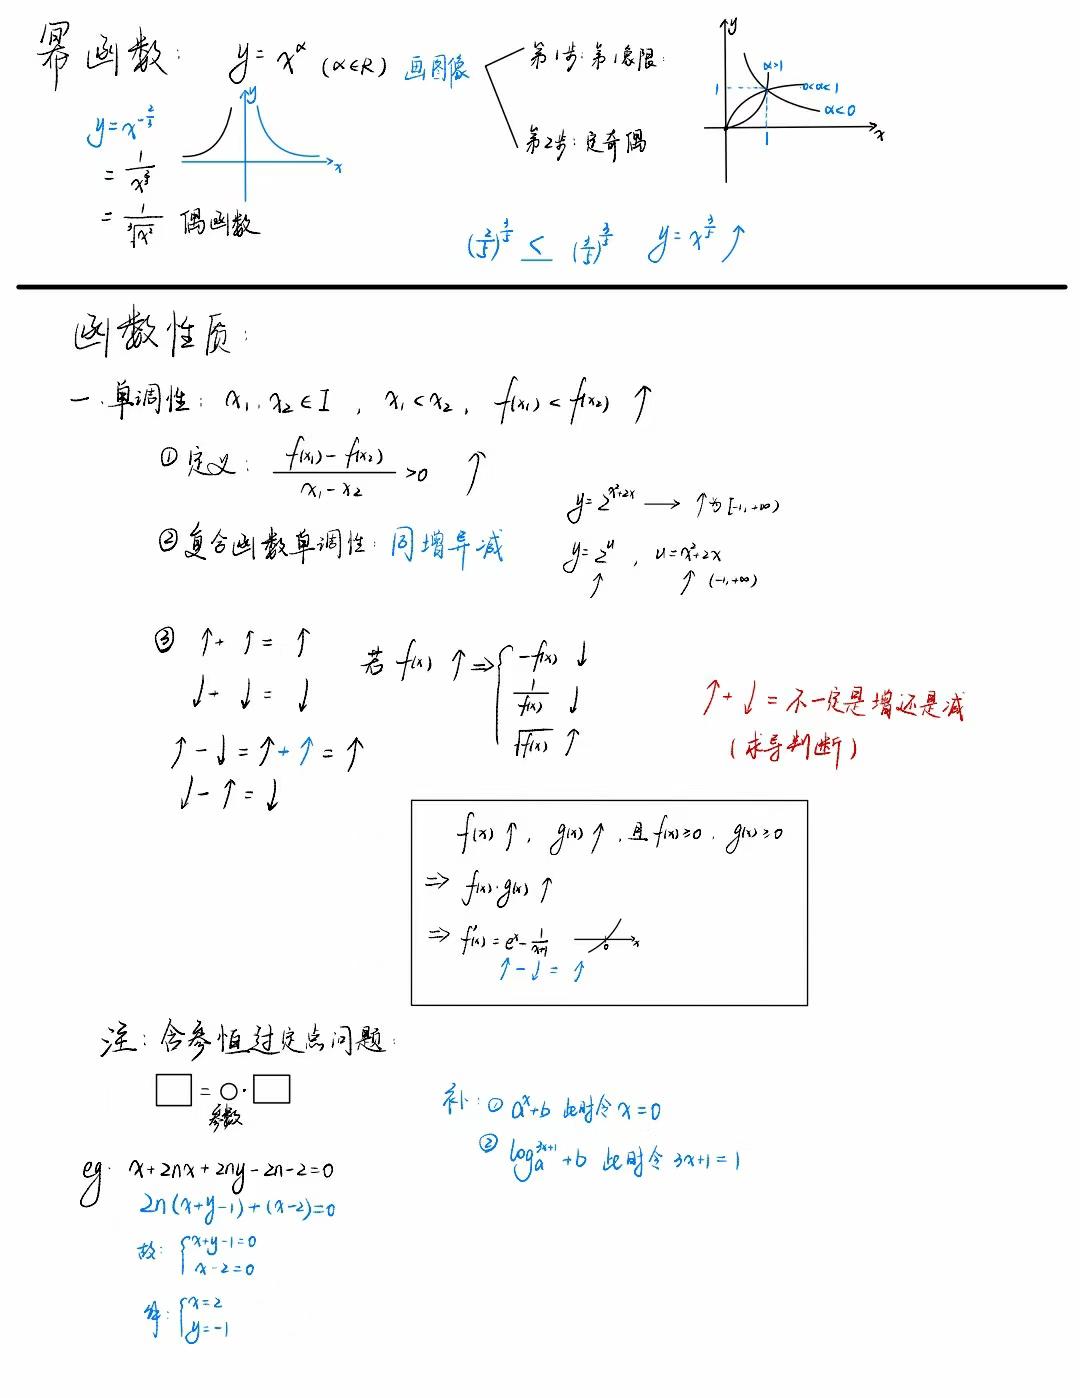 幂函数: y=x^α (α∈R) 画图像
第1步:第1象限:
第2步:定奇偶
y
α>1
0<α<1
α<0
1
1
x
y=x^(-2/3)
= 1/x^(2/3)
= 1/∛x² 偶函数
y
x
(2/5)^(3/5) < (3/5)^(3/5) y=x^(3/5) ↑
函数性质:
一.单调性: x₁,x₂∈I , x₁<x₂, f(x₁)<f(x₂) ↑
①定义: (f(x₁)-f(x₂))/(x₁-x₂) >0 ↑
②复合函数单调性:同增异减
y=2^(x²+2x) → ↑为[-1,+∞)
y=2^u , u=x²+2x
↑ ↑ (-1,+∞)
③ ↑+ ↑= ↑
↓+ ↓= ↓
↑-↓=↑+↑=↑
↓-↑=↓
若 f(x) ↑ ⇒ { -f(x) ↓
1/f(x) ↓
√f(x) ↑
↑+↓=不一定是增还是减
(求导判断)
f(x)↑, g(x)↑,且f(x)≥0, g(x)≥0
⇒ f(x)·g(x) ↑
⇒ f'(x)=e^x-1/(x+1) 0 x
↑-↓= ↑
注:含参恒过定点问题:
□ = ○·□
参数
补:① a^x+b 此时令 x=0
② log_a^(3x+1) +b 此时令 3x+1=1
eg. x+2nx+2ny-2n-2=0
2n(x+y-1)+(x-2)=0
故: { x+y-1=0
x-2=0
解: { x=2
y=-1